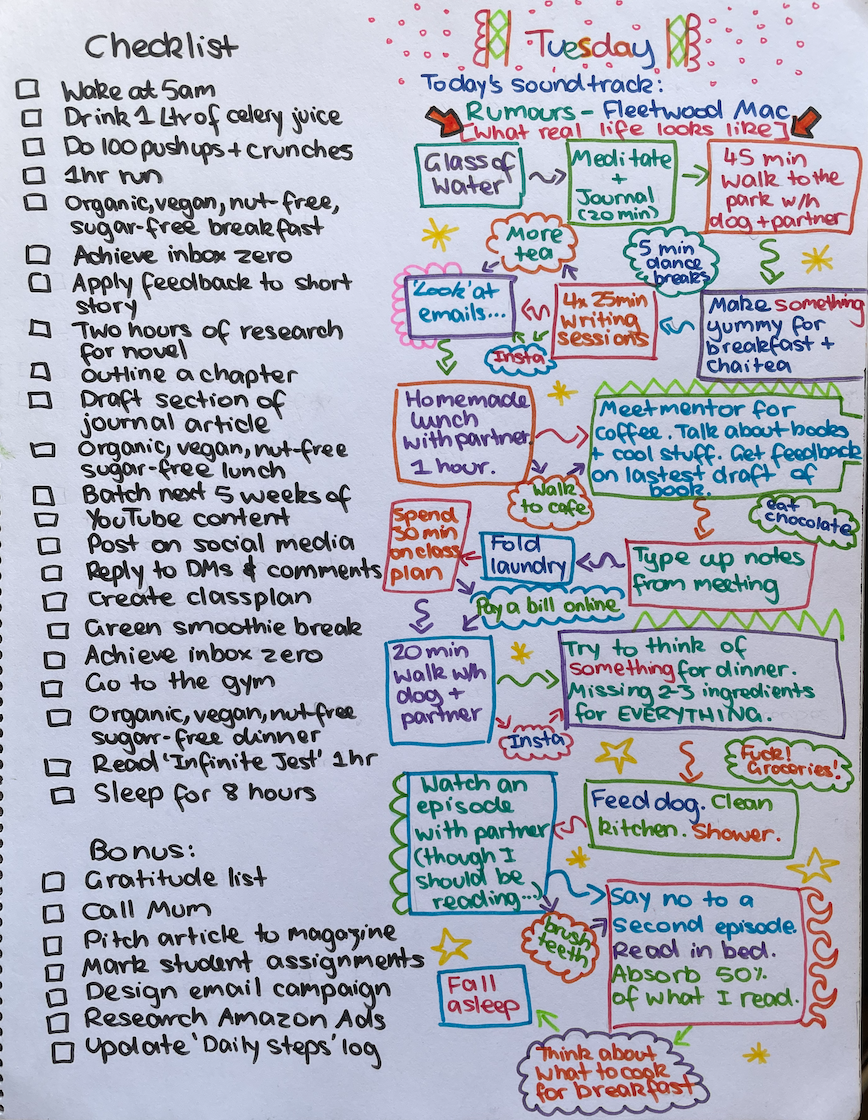 Checklist
Wake at 5am
Drink 1 Ltr of celery juice
Do 100 pushups + crunches
1hr run
Organic, vegan, nut-free,
sugar-free breakfast
Achieve inbox zero
Apply feedback to short
story
Two hours of research
for novel
Outline a chapter
Draft section of
journal article
Organic, vegan, nut-free
sugar-free lunch
Batch next 5 weeks of
YouTube content
Post on social media
Reply to DMs & comments
Create classplan
Green smoothie break
Achieve inbox zero
Go to the gym
Organic, vegan, nut-free
sugar-free dinner
Read 'Infinite Jest' 1hr
Sleep for 8 hours
Bonus:
Gratitude list
Call Mum
Pitch article to magazine
Mark student assignments
Design email campaign
Research Amazon Ads
Update 'Daily Steps' log
Tuesday
Today's soundtrack:
Rumours - Fleetwood Mac
[What real life looks like]
Glass of
Water
Meditate
+
Journal
(20 min)
45 min
walk to the
park w/h
dog + partner
More
tea
5 min
dance
breaks
'Look' at
emails...
4x 25min
writing
sessions
Make something
yummy for
breakfast +
chai tea
Insta
Homemade
lunch
with partner
1 hour.
Meet mentor for
coffee. Talk about books
+ cool stuff. Get feedback
on lastest draft of
book.
Walk
to cafe
eat
chocolate
Spend
30 min
on class
plan
Fold
laundry
Type up notes
from meeting
Pay a bill online
20 min
walk w/h
dog +
partner
Try to think of
something for dinner.
Missing 2-3 ingredients
for EVERYTHING.
Insta
Fuck!
Groceries!
Watch an
episode
with partner
(though I
should be
reading...)
Feed dog. Clean
kitchen. Shower.
brush
teeth
Say no to a
second episode.
Read in bed.
Absorb 50%
of what I read.
Fall
asleep
Think about
what to cook
for breakfast